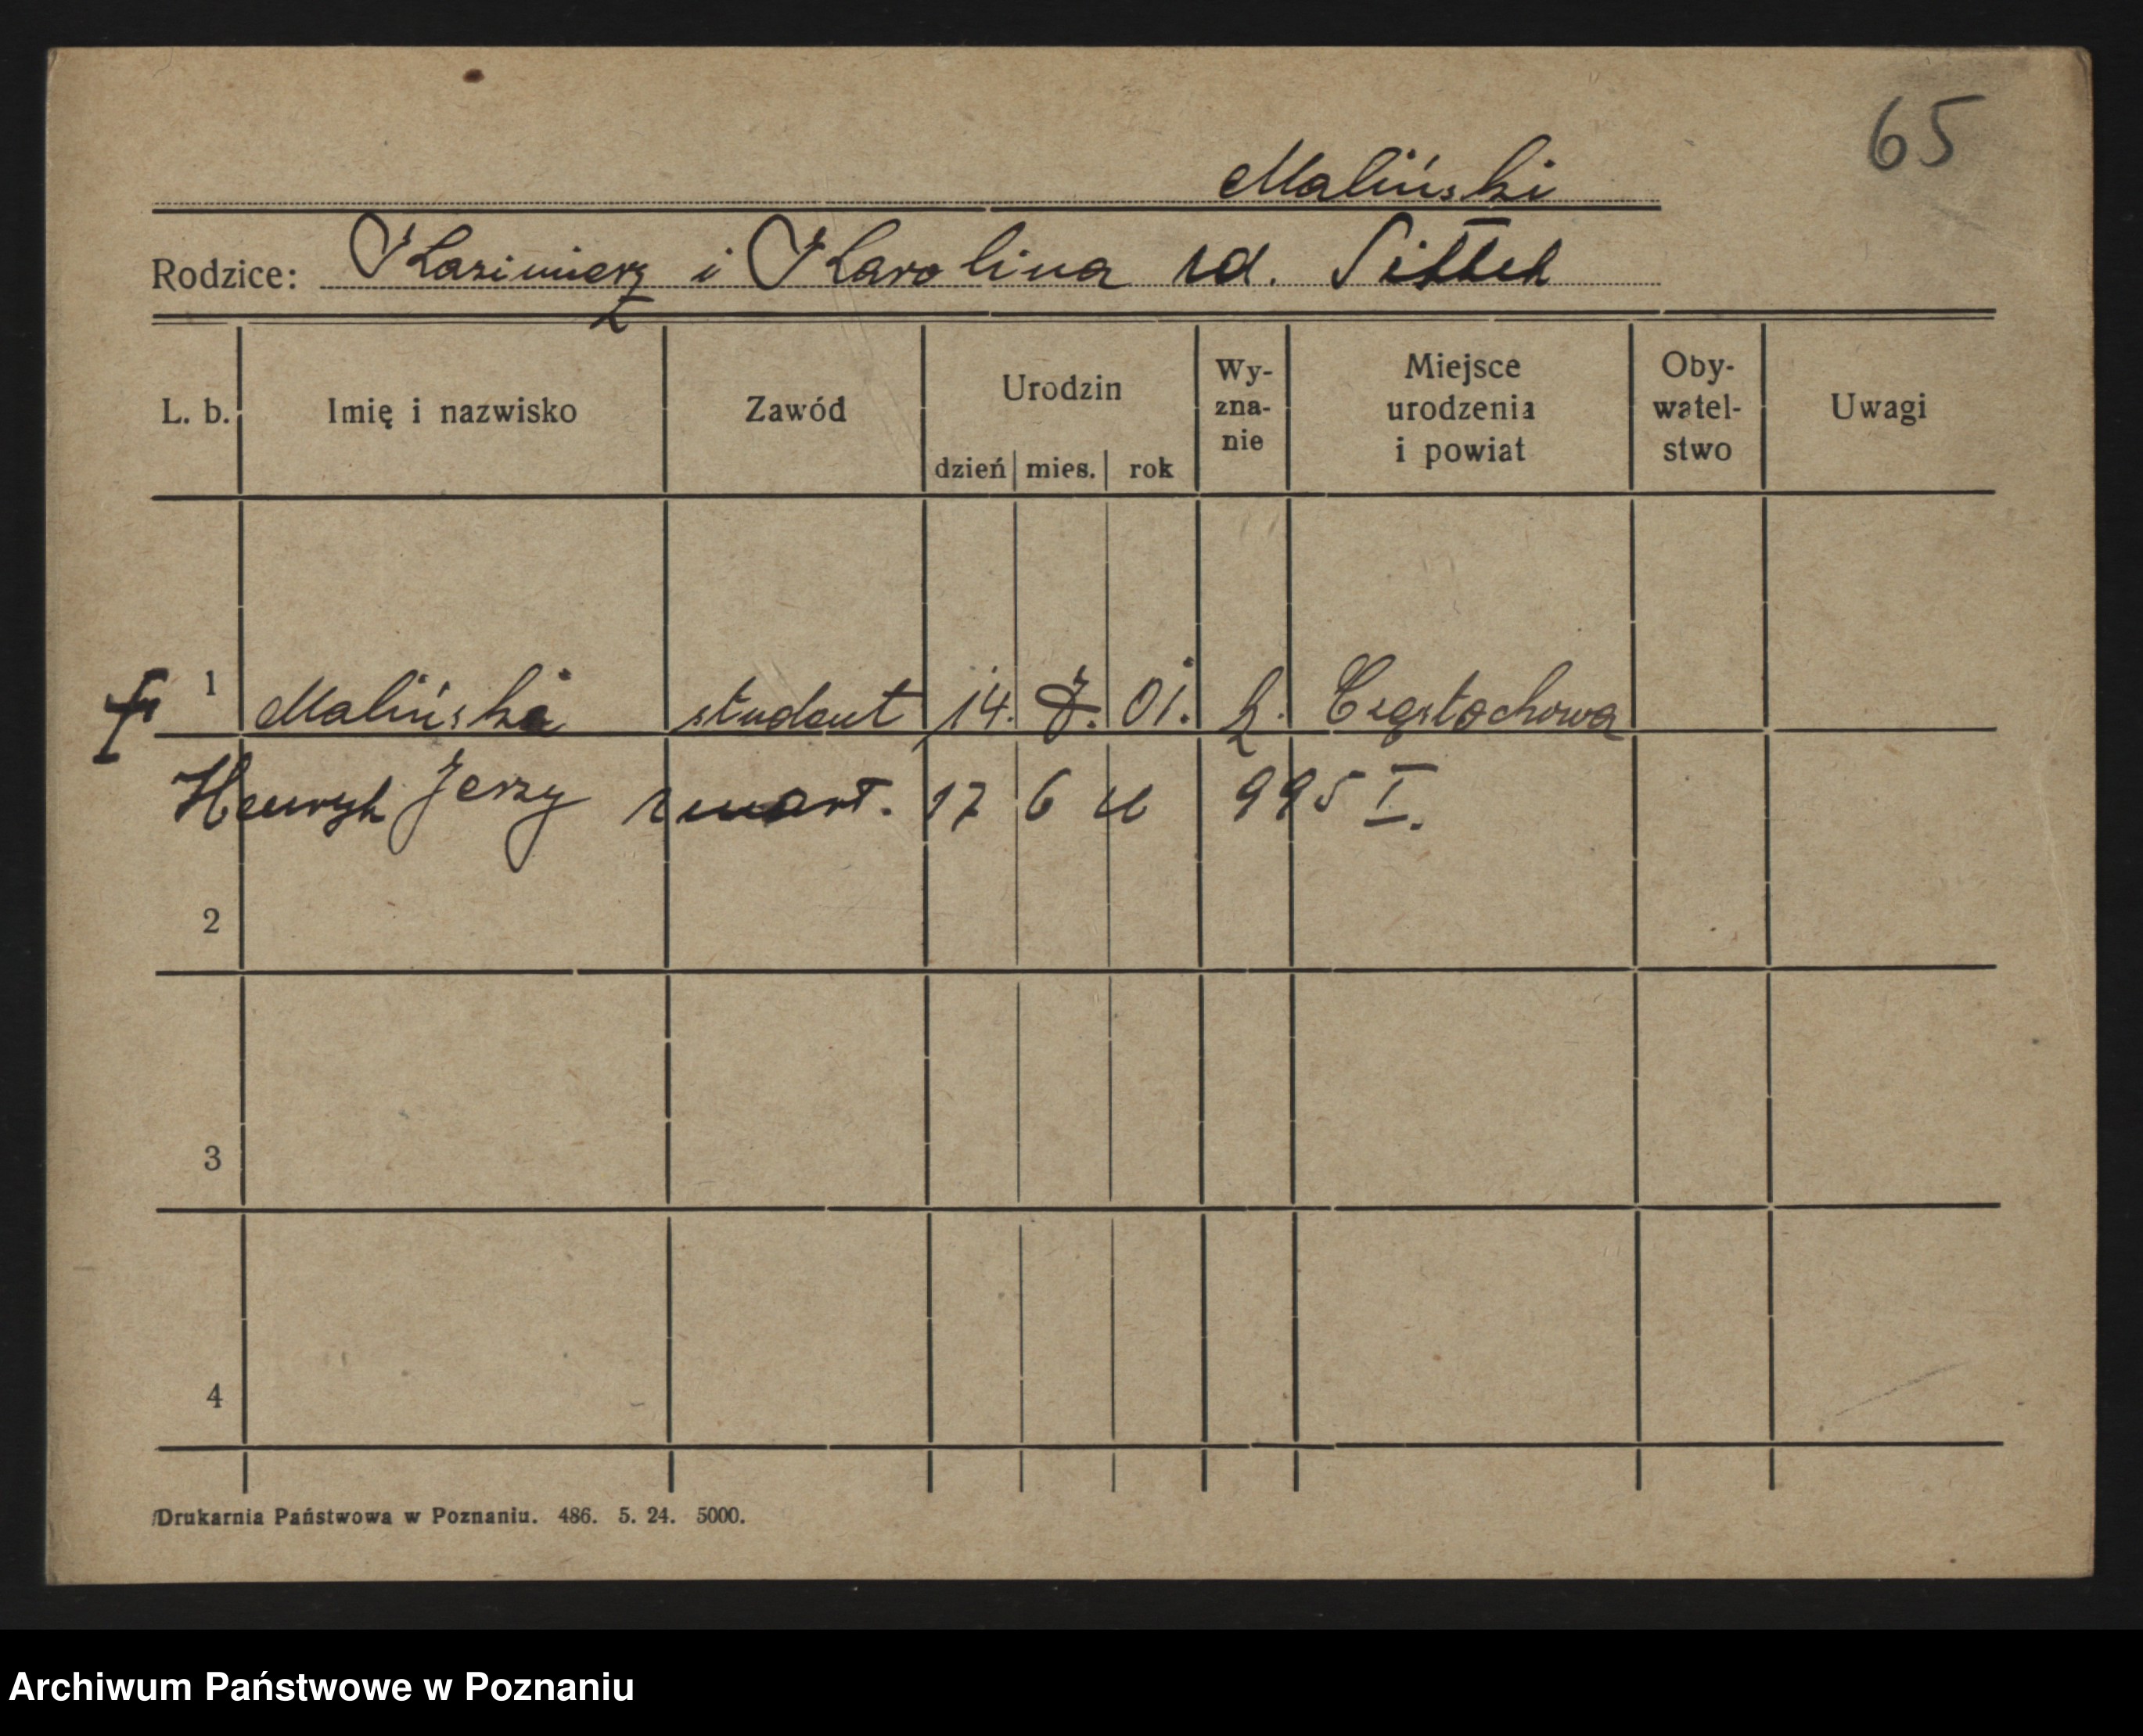 65
Maliński
Rodzice: Kazimierz i Karolina zd. Sittek
L. b. Imię i nazwisko Zawód Urodzin dzień mies. rok Wy-zna-nie Miejsce urodzenia i powiat Oby-watel-stwo Uwagi
1 Maliński student 14. 7. 01. k. Częstochowa
Henryk Jerzy zmart. 17 6 995 I.
2
3
4
Drukarnia Państwowa w Poznaniu. 486. 5. 24. 5000.
Archiwum Państwowe w Poznaniu